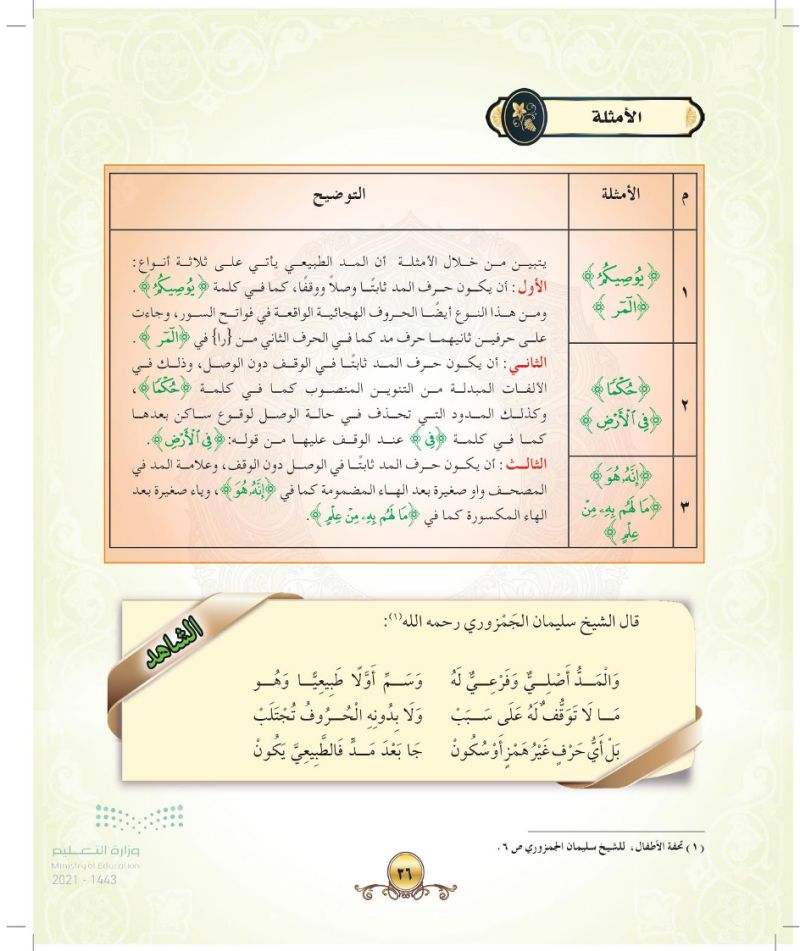 الأمثلة
م الأمثلة التوضيح
١ ﴿يُوصِيكُمُ﴾
﴿الٓمٓر﴾
٢ ﴿حُكْمًا﴾
﴿فِي ٱلْأَرْضِ﴾
٣ ﴿إِنَّهُۥ هُوَ﴾
﴿مَا لَهُم بِهِۦ مِنْ
عِلْمٍ﴾
يتبين من خلال الأمثلة أن المد الطبيعي يأتي على ثلاثة أنواع:
الأول: أن يكون حرف المد ثابتًا وصلاً ووقفًا، كما في كلمة ﴿يُوصِيكُمُ﴾.
ومن هذا النوع أيضًا الحروف الهجائية الواقعة في فواتح السور، وجاءت
على حرفين ثانيهما حرف مد كما في الحرف الثاني من {را} في ﴿الٓمٓر﴾.
الثاني: أن يكون حرف المد ثابتًا في الوقف دون الوصل، وذلك في
الألفات المبدلة من التنوين المنصوب كما في كلمة ﴿حُكْمًا﴾،
وكذلك المدود التي تحذف في حالة الوصل لوقوع ساكن بعدها
كما في كلمة ﴿فِي﴾ عند الوقف عليها من قوله: ﴿فِي ٱلْأَرْضِ﴾.
الثالث: أن يكون حرف المد ثابتًا في الوصل دون الوقف، وعلامة المد في
المصحف واو صغيرة بعد الهاء المضمومة كما في ﴿إِنَّهُۥ هُوَ﴾، وياء صغيرة بعد
الهاء المكسورة كما في ﴿مَا لَهُم بِهِۦ مِنْ عِلْمٍ﴾.
الشاهد
قال الشيخ سليمان الجَمْزوري رحمه الله(١):
وَالْمَدُّ أَصْلِيٌّ وَفَرْعِيٌّ لَهُ وَسَمِّ أَوَّلًا طَبِيعِيًّا وَهُو
مَا لَا تَوَقُّفٌ لَهُ عَلَى سَبَبْ وَلَا بِدُونِهِ الْحُرُوفُ تُجْتَلَبْ
بَلْ أَيُّ حَرْفٍ غَيْرُ هَمْزٍ أَوْ سُكُونْ جَا بَعْدَ مَدٍّ فَالطَّبِيعِيَّ يَكُونْ
(١) تحفة الأطفال، للشيخ سليمان الجمزوري ص ٦.
وزارة التعليم
Ministry of Education
2021 - 1443
٣٦